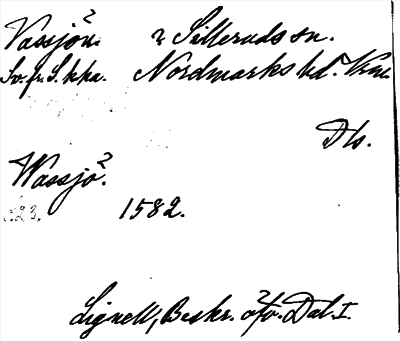 Vassjön ? i Silleruds sn.
Sv. fr. S. kka. Nordmarks hd. Vrml
Dls.
Wassjö ?
s. 23. 1582.
Lignell, Beskr. öfv. Dal. I.